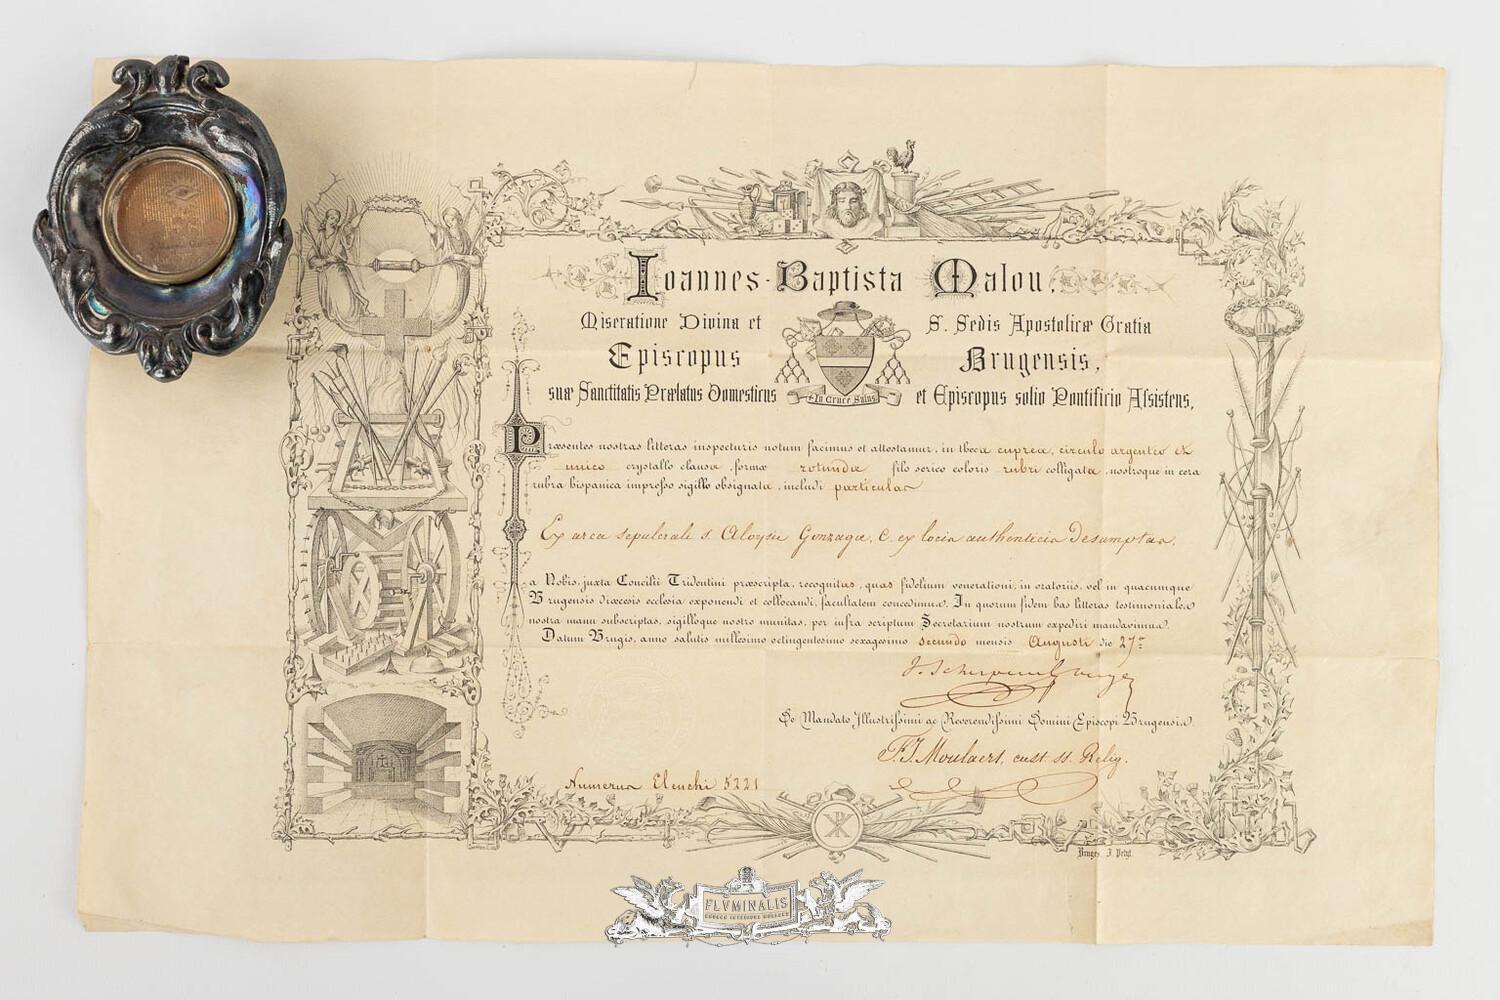 Ioannes-Baptista Malou,
Miseratione Divina et S. Sedis Apostolicæ Gratia
Episcopus Brugensis,
suæ Sanctitatis Prælatus Domesticus et Episcopus solio Pontificio Assistens,
In Cruce Salus
Præsentes nostras litteras inspecturis notum facimus et attestamur, in theca cuprea, circulo argenteo et
unico crystallo clausa, formæ rotundæ filo serico coloris rubri colligata, nostroque in cera
rubra hispanica impresso sigillo obsignata, includi particulas
Ex arca sepulcrali s. Aloysii Gonzagæ, C. ex locis authenticis desumptas,
a Nobis, juxta Concilii Tridentini præscripta, recognitas, quas fidelium venerationi, in oratoriis, vel in quacumque
Brugensis diœcesis ecclesia exponendi et collocandi, facultatem concedimus. In quorum fidem has litteras testimoniales
nostra manu subscriptas, sigilloque nostro munitas, per infra scriptum Secretarium nostrum expediri mandavimus.
Datum Brugis, anno salutis millesimo octingentesimo sexagesimo secundo mensis Augusti die 27ª
De Mandato Illustrissimi ac Reverendissimi Domini Episcopi Brugensis.
F. J. Moulaert, cust. ss. Reliq.
Numerus Elenchi 5221
Bruges. J. Petyt
FLVMINALIS